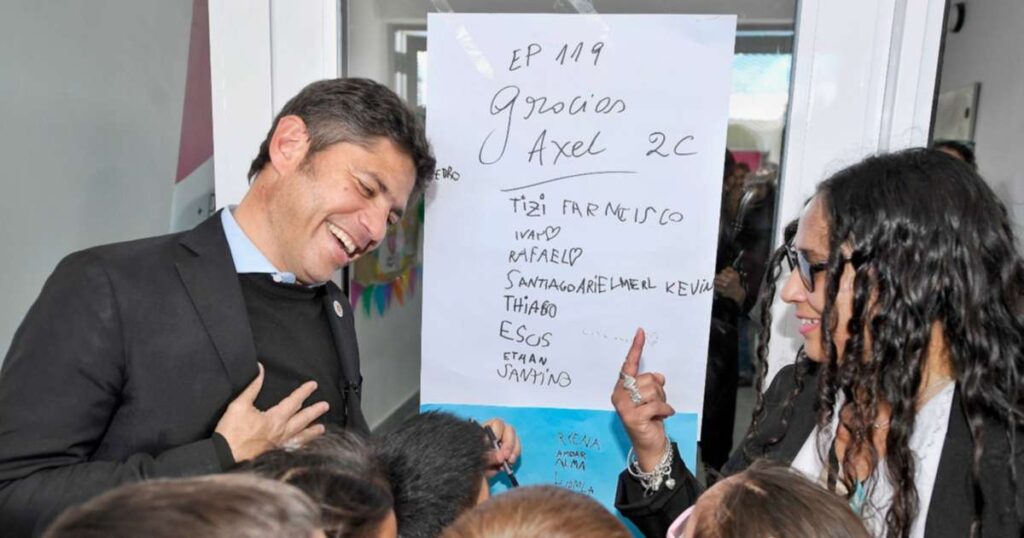 EP 119
gracias
Axel 2C
EDRO
TIZI FARNCISCO
IVAN♡
RAFAEL♡
SANTIAGO ARIEL MERL KEVIN
THIAGO
ESOS
ETHAN
SANTINO
RYENA
ALMA